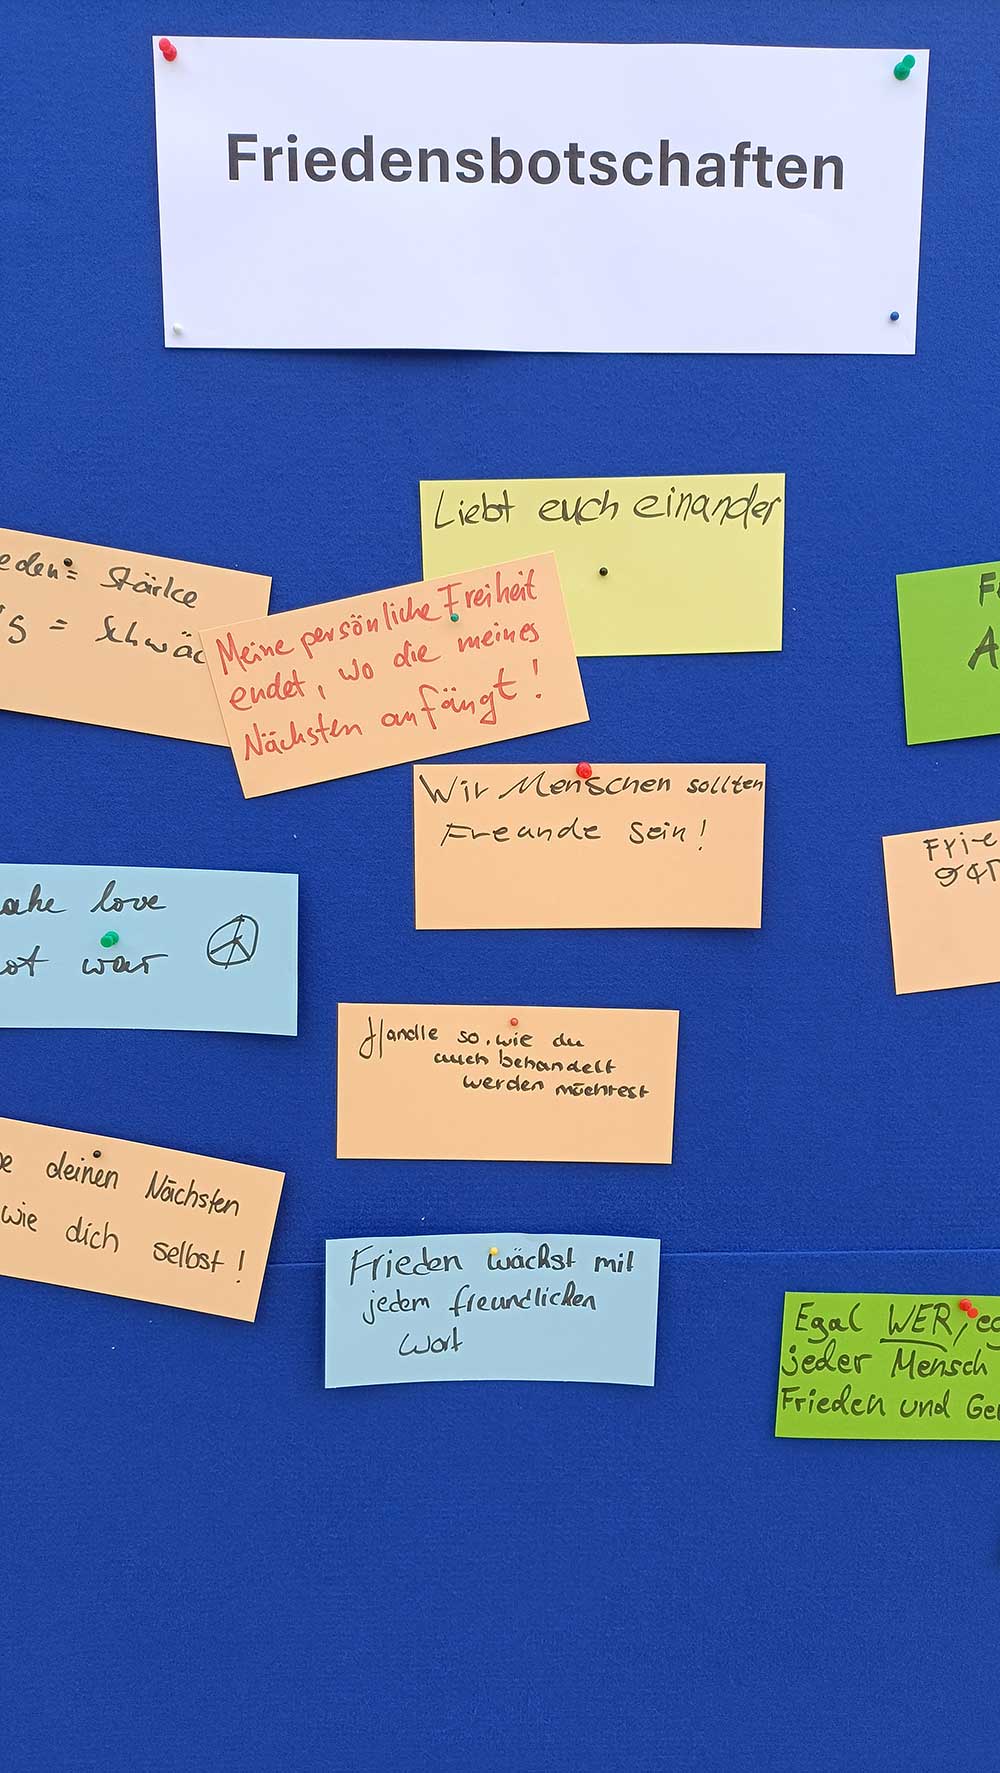 Friedensbotschaften
Liebt euch einander
eden = Stärke
g = Schwäc
Meine persönliche Freiheit
endet, wo die meines
Nächsten anfängt!
F
A
Wir Menschen sollten
Freunde sein!
Frie
gar
ake love
ot war
Handle so, wie du
auch behandelt
werden möchtest
e deinen Nächsten
wie dich selbst!
Frieden wächst mit
jedem freundlichen
Wort
Egal WER, eg
jeder Mensch
Frieden und Ge